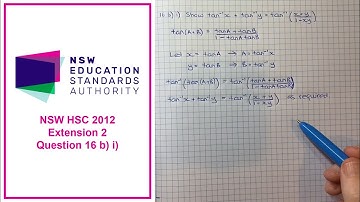 NSW
EDUCATION
STANDARDS
AUTHORITY
NSW HSC 2012
Extension 2
Question 16 b) i)
16 b) i) Show tan⁻¹x + tan⁻¹y = tan⁻¹(x+y / 1-xy)
tan(A+B) = tanA + tanB / 1 - tanA tanB
Let x = tanA → A = tan⁻¹x
y = tanB → B = tan⁻¹y
tan⁻¹(tan(A+B)) = tan⁻¹(tanA + tanB / 1 - tanA tanB)
tan⁻¹x + tan⁻¹y = tan⁻¹(x + y / 1 - xy) as required